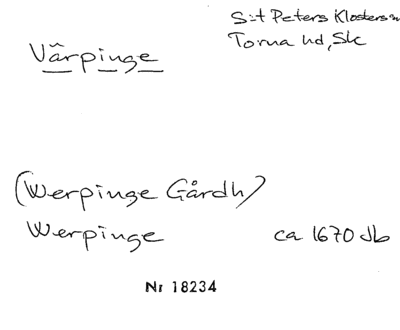 Värpinge
S:t Peters Klosters sn
Torna hd, Sk
(Werpinge Gårdh)
Werpinge ca 1670 Jb
Nr 18234